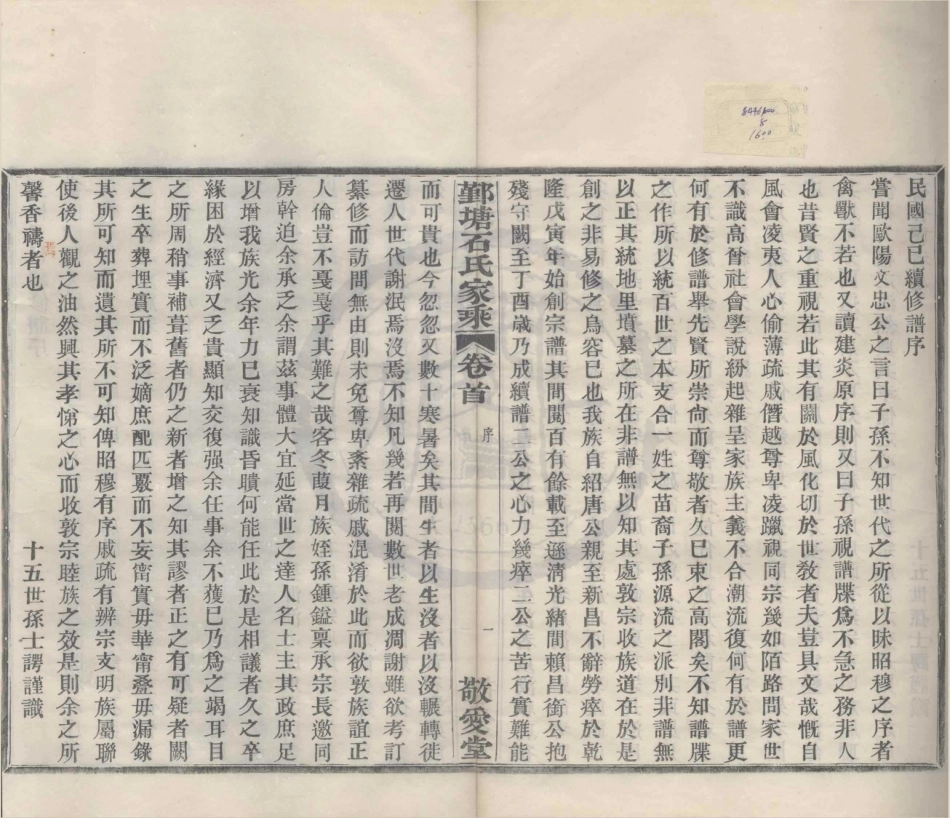 民國己巳續修譜序
嘗聞歐陽文忠公之言曰子孫不知世代之所從以昧昭穆之序者
禽獸不若也又讀建炎原序則又曰子孫視譜牒爲不急之務非人
也昔賢之重視若此其有關於風化切於世敎者夫豈具文哉慨自
風會凌夷人心偷薄疏戚僭越尊卑凌躐視同宗幾如陌路問家世
不識高曾社會學說紛起雜呈家族主義不合潮流復何有於譜更
何有於修譜舉先賢所崇尙而尊敬者久已束之高閣矣不知譜牒
之作所以統百世之本支合一姓之苗裔子孫源流之派別非譜無
以正其統地里墳墓之所在非譜無以知其處敦宗收族道在於是
創之非易修之烏容已也我族自紹唐公親至新昌不辭勞瘁於乾
隆戊寅年始創宗譜其間閱百有餘載至遜清光緒間賴昌銜公抱
殘守闕至丁酉歲乃成續譜二公之心力幾瘁二公之苦行實難能
鄞塘石氏家乘 卷首 序 一 敬愛堂
而可貴也今忽忽又數十寒暑矣其間生者以生沒者以沒輾轉徙
遷人世代謝泯焉沒焉不知凡幾若再閱數世老成凋謝雖欲考訂
纂修而訪問無由則未免尊卑紊雜疏戚混淆於此而欲敦族誼正
人倫豈不戛戛乎其難之哉客冬葭月族姪孫鍾鎰稟承宗長邀同
房幹迫余承乏余謂茲事體大宜延當世之達人名士主其政庶足
以增我族光余年力已衰知識昏聵何能任此於是相議者久之卒
緣困於經濟又乏貴顯知交復强余任事余不獲已乃爲之竭耳目
之所周稍事補葺舊者仍之新者增之知其謬者正之有可疑者闕
之生卒葬埋實而不泛嫡庶配匹覈而不妄甯實毋華甯叠毋漏錄
其所可知而遺其所不可知俾昭穆有序戚疏有辨宗支明族屬聯
使後人觀之油然興其孝悌之心而收敦宗睦族之效是則余之所
馨香禱者也
十五世孫士諤謹識
1600